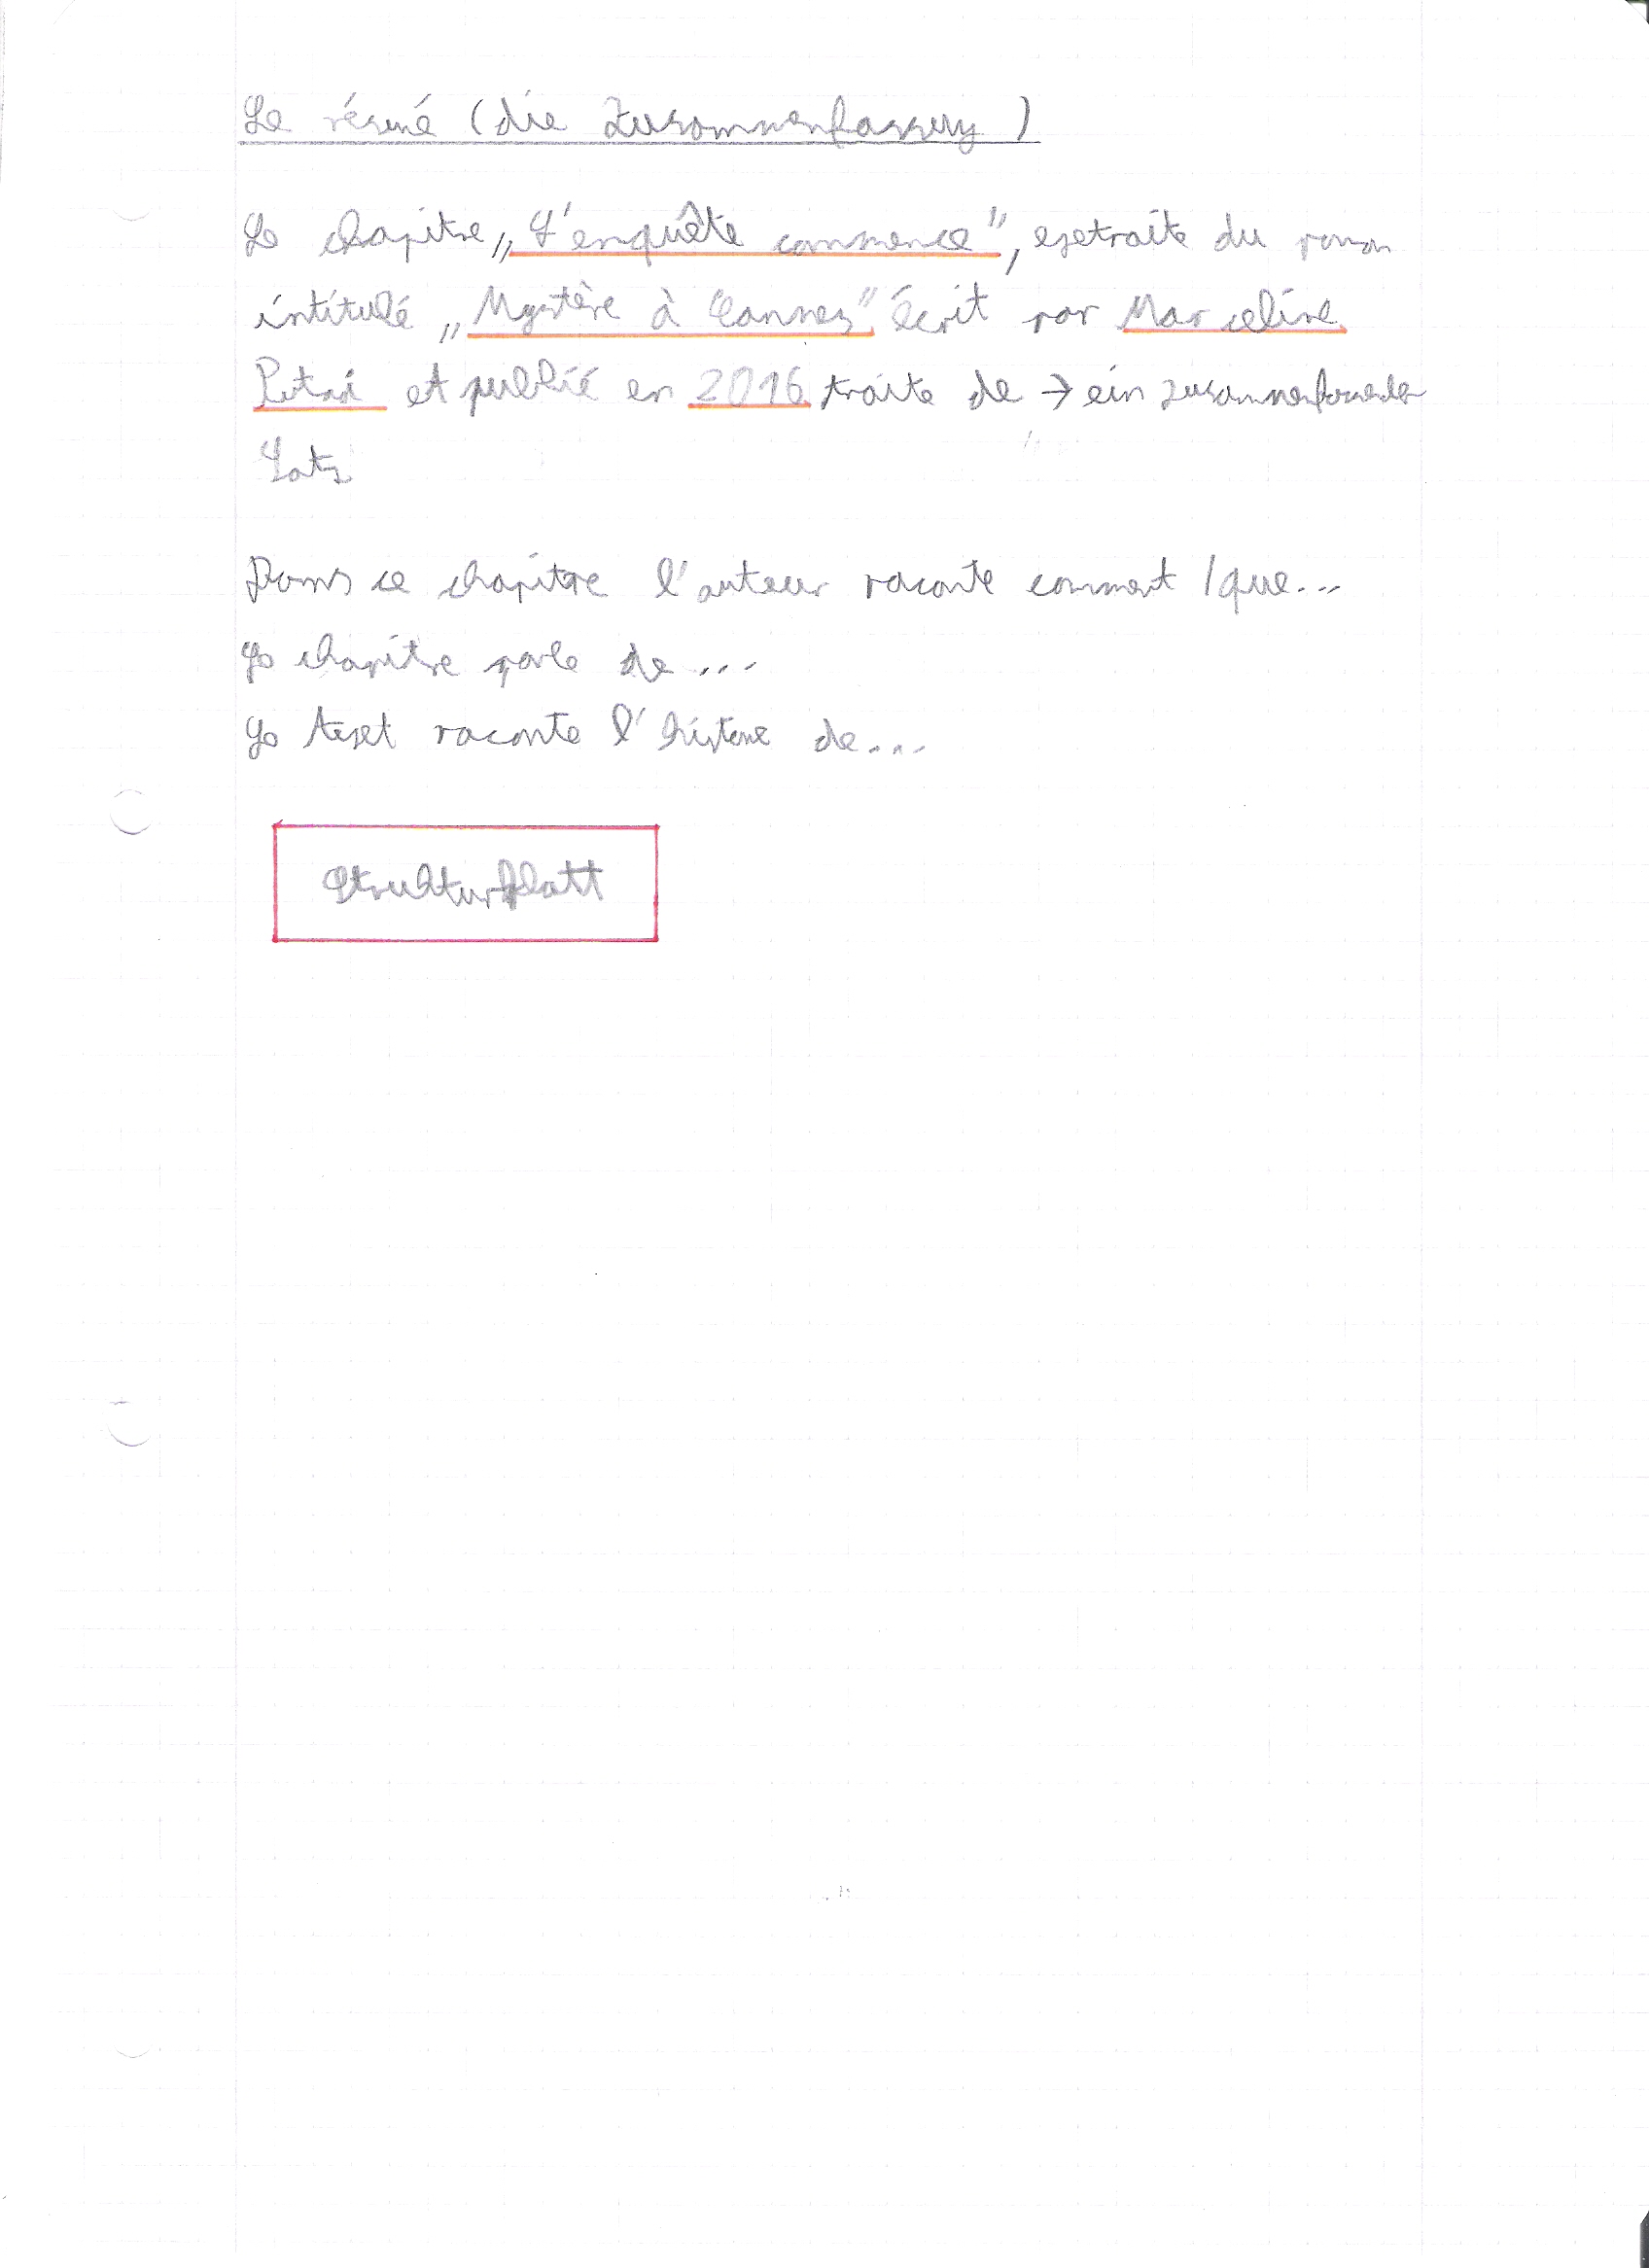 Le résumé (die Zusammenfassung)
Le chapitre „L'enquête commence", extraite du roman
intitulé „Mystère à Cannes" écrit par Marceline
et publié en 2016 traite de → ein zusammenfassender
Satz
Dans ce chapitre l'auteur raconte comment / que...
Le chapitre parle de ...
Le text raconte l'histoire de...
Strukturblatt